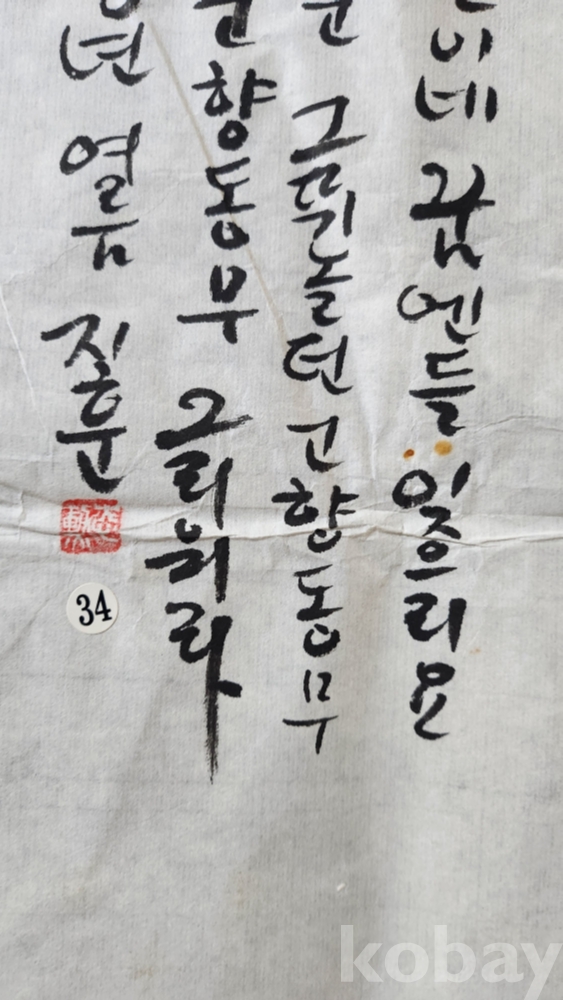 이네 꿈엔들 잊으리요
그 뛰놀던 고향동무
향동무 그리워라
년 열음
34
kobay